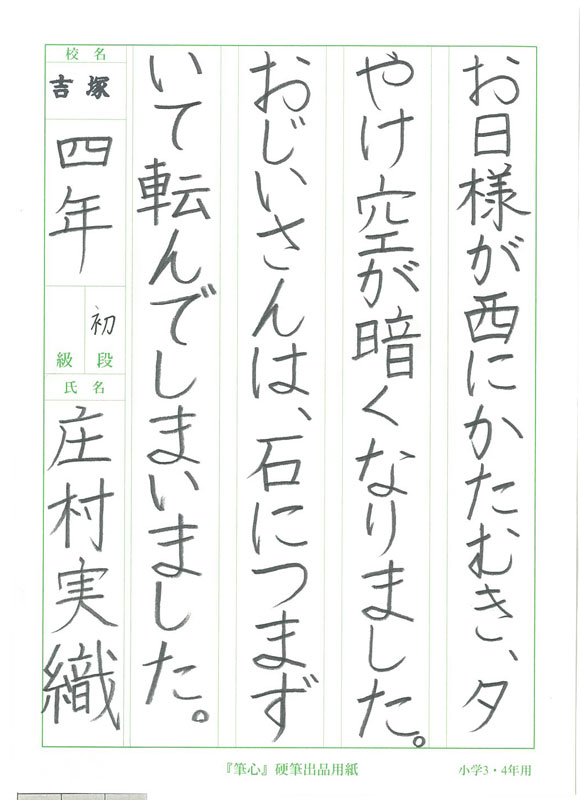 お日様が西にかたむき、夕
やけ空が暗くなりました。
おじいさんは、石につまず
いて転んでしまいました。
校名
吉塚
四年
初
級 段
氏名
庄村実織
『筆心』硬筆出品用紙
小学3・4年用